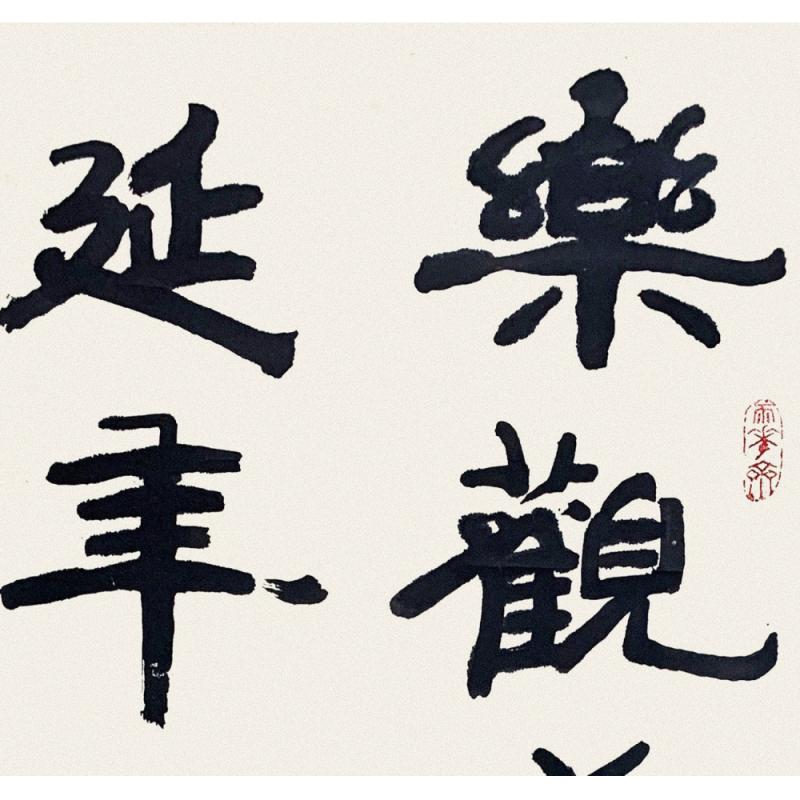 樂觀
延年